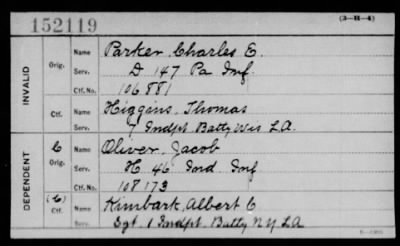 152119 (3-H-4)
INVALID
Orig. Name Parker, Charles E.
Serv. D 147 Pa Inf.
Ctf. No. 106881
Ctf. Name Higgins, Thomas
Serv. 7 Indpt. Batty Wis L.A.
DEPENDENT
C Orig. Name Oliver, Jacob
Serv. H 46 Ind Inf
Ctf. No. 108173
(C) Ctf. Name Kimbark, Albert C
Serv. Sgt. 1 Indpt. Batty N.Y. L.A